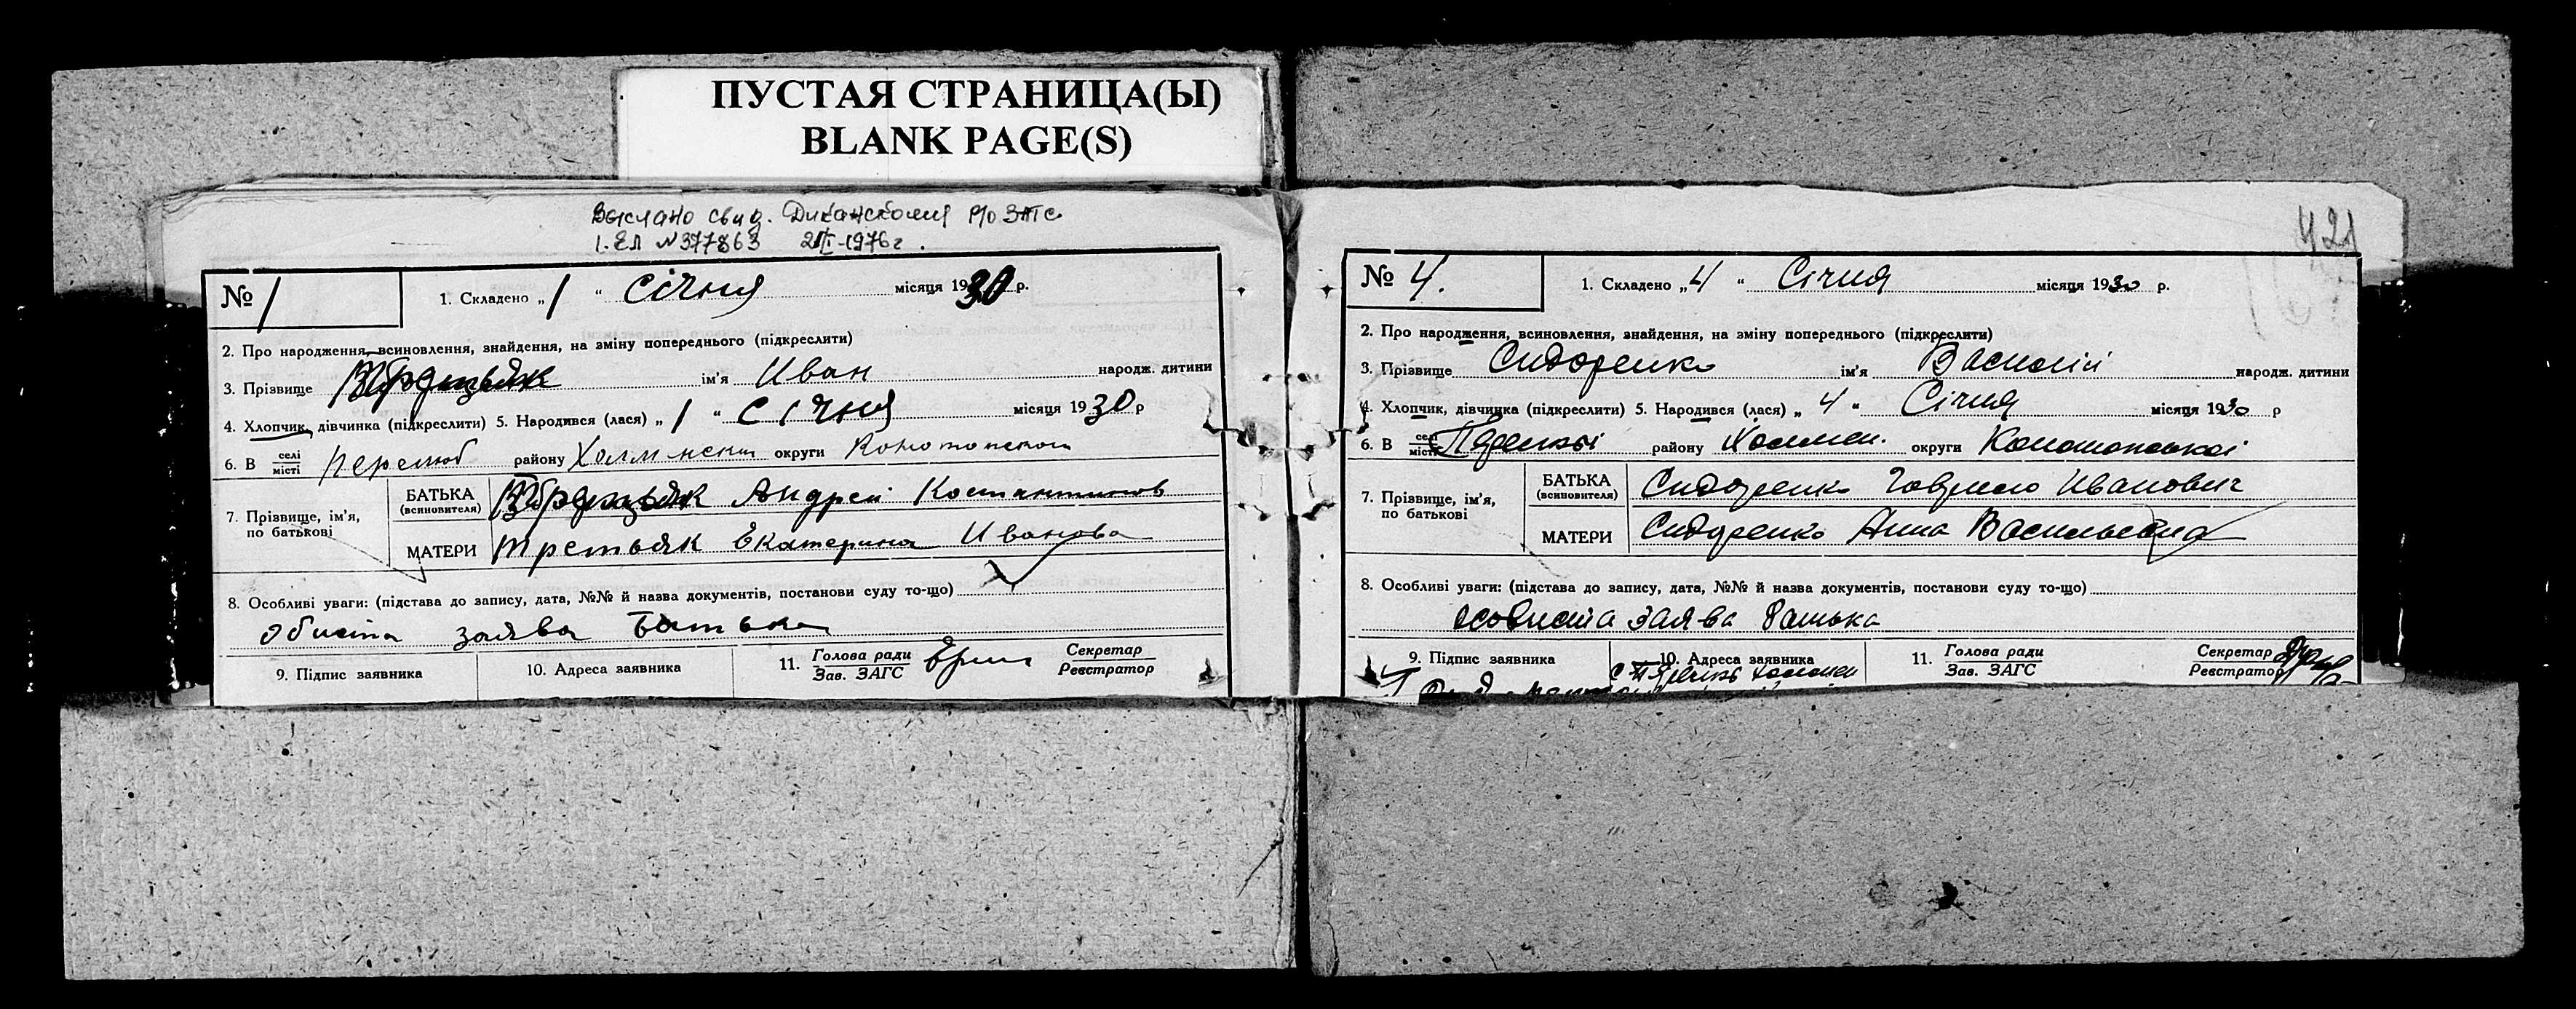 ПУСТАЯ СТРАНИЦА(Ы)
BLANK PAGE(S)
Выслано свид. Диканському Р/о ЗАГС
I-ЕЛ №377863 1976 г.
№ 1
1. Складено „1“ Січня місяця 1930 р.
2. Про народження, всиновлення, знайдення, на зміну попереднього (підкреслити)
3. Прізвище ім'я Иван народж. дитини
4. Хлопчик, дівчинка (підкреслити) 5. Народився (лася) „1“ Січня місяця 1930 р
6. В селі/місті Перелюб району Холменськ округи Конотопской
7. Прізвище, ім'я, по батькові
БАТЬКА (всиновителя) Андрей Костантинов
МАТЕРИ Третьяк Екатерина Иванова
8. Особливі уваги: (підстава до запису, дата, №№ й назва документів, постанови суду то-що)
обиста заява батька
9. Підпис заявника 10. Адреса заявника 11. Голова ради/Зав. ЗАГС Секретар/Реєстратор
421
№ 4.
1. Складено „4“ Січня місяця 1930 р.
2. Про народження, всиновлення, знайдення, на зміну попереднього (підкреслити)
3. Прізвище Сидоренко ім'я Василій народж. дитини
4. Хлопчик, дівчинка (підкреслити) 5. Народився (лася) „4“ Січня місяця 1930 р
6. В селі/місті району Холмен. округи Конотопської
7. Прізвище, ім'я, по батькові
БАТЬКА (всиновителя) Сидоренко Гаврило Иванович
МАТЕРИ Сидоренко Анна Васильевна
8. Особливі уваги: (підстава до запису, дата, №№ й назва документів, постанови суду то-що)
особиста заява батька
9. Підпис заявника 10. Адреса заявника 11. Голова ради/Зав. ЗАГС Секретар/Реєстратор